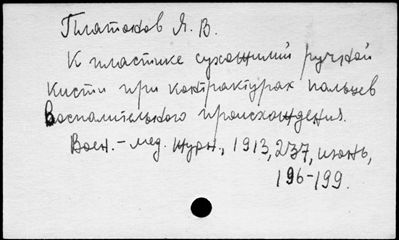 Платонов Я. В.
К пластике сухожилий ручной
кисти при контрактурах пальцев
воспалительного происхождения.
Воен.-мед. журн., 1913, 237, июнь,
196-199.